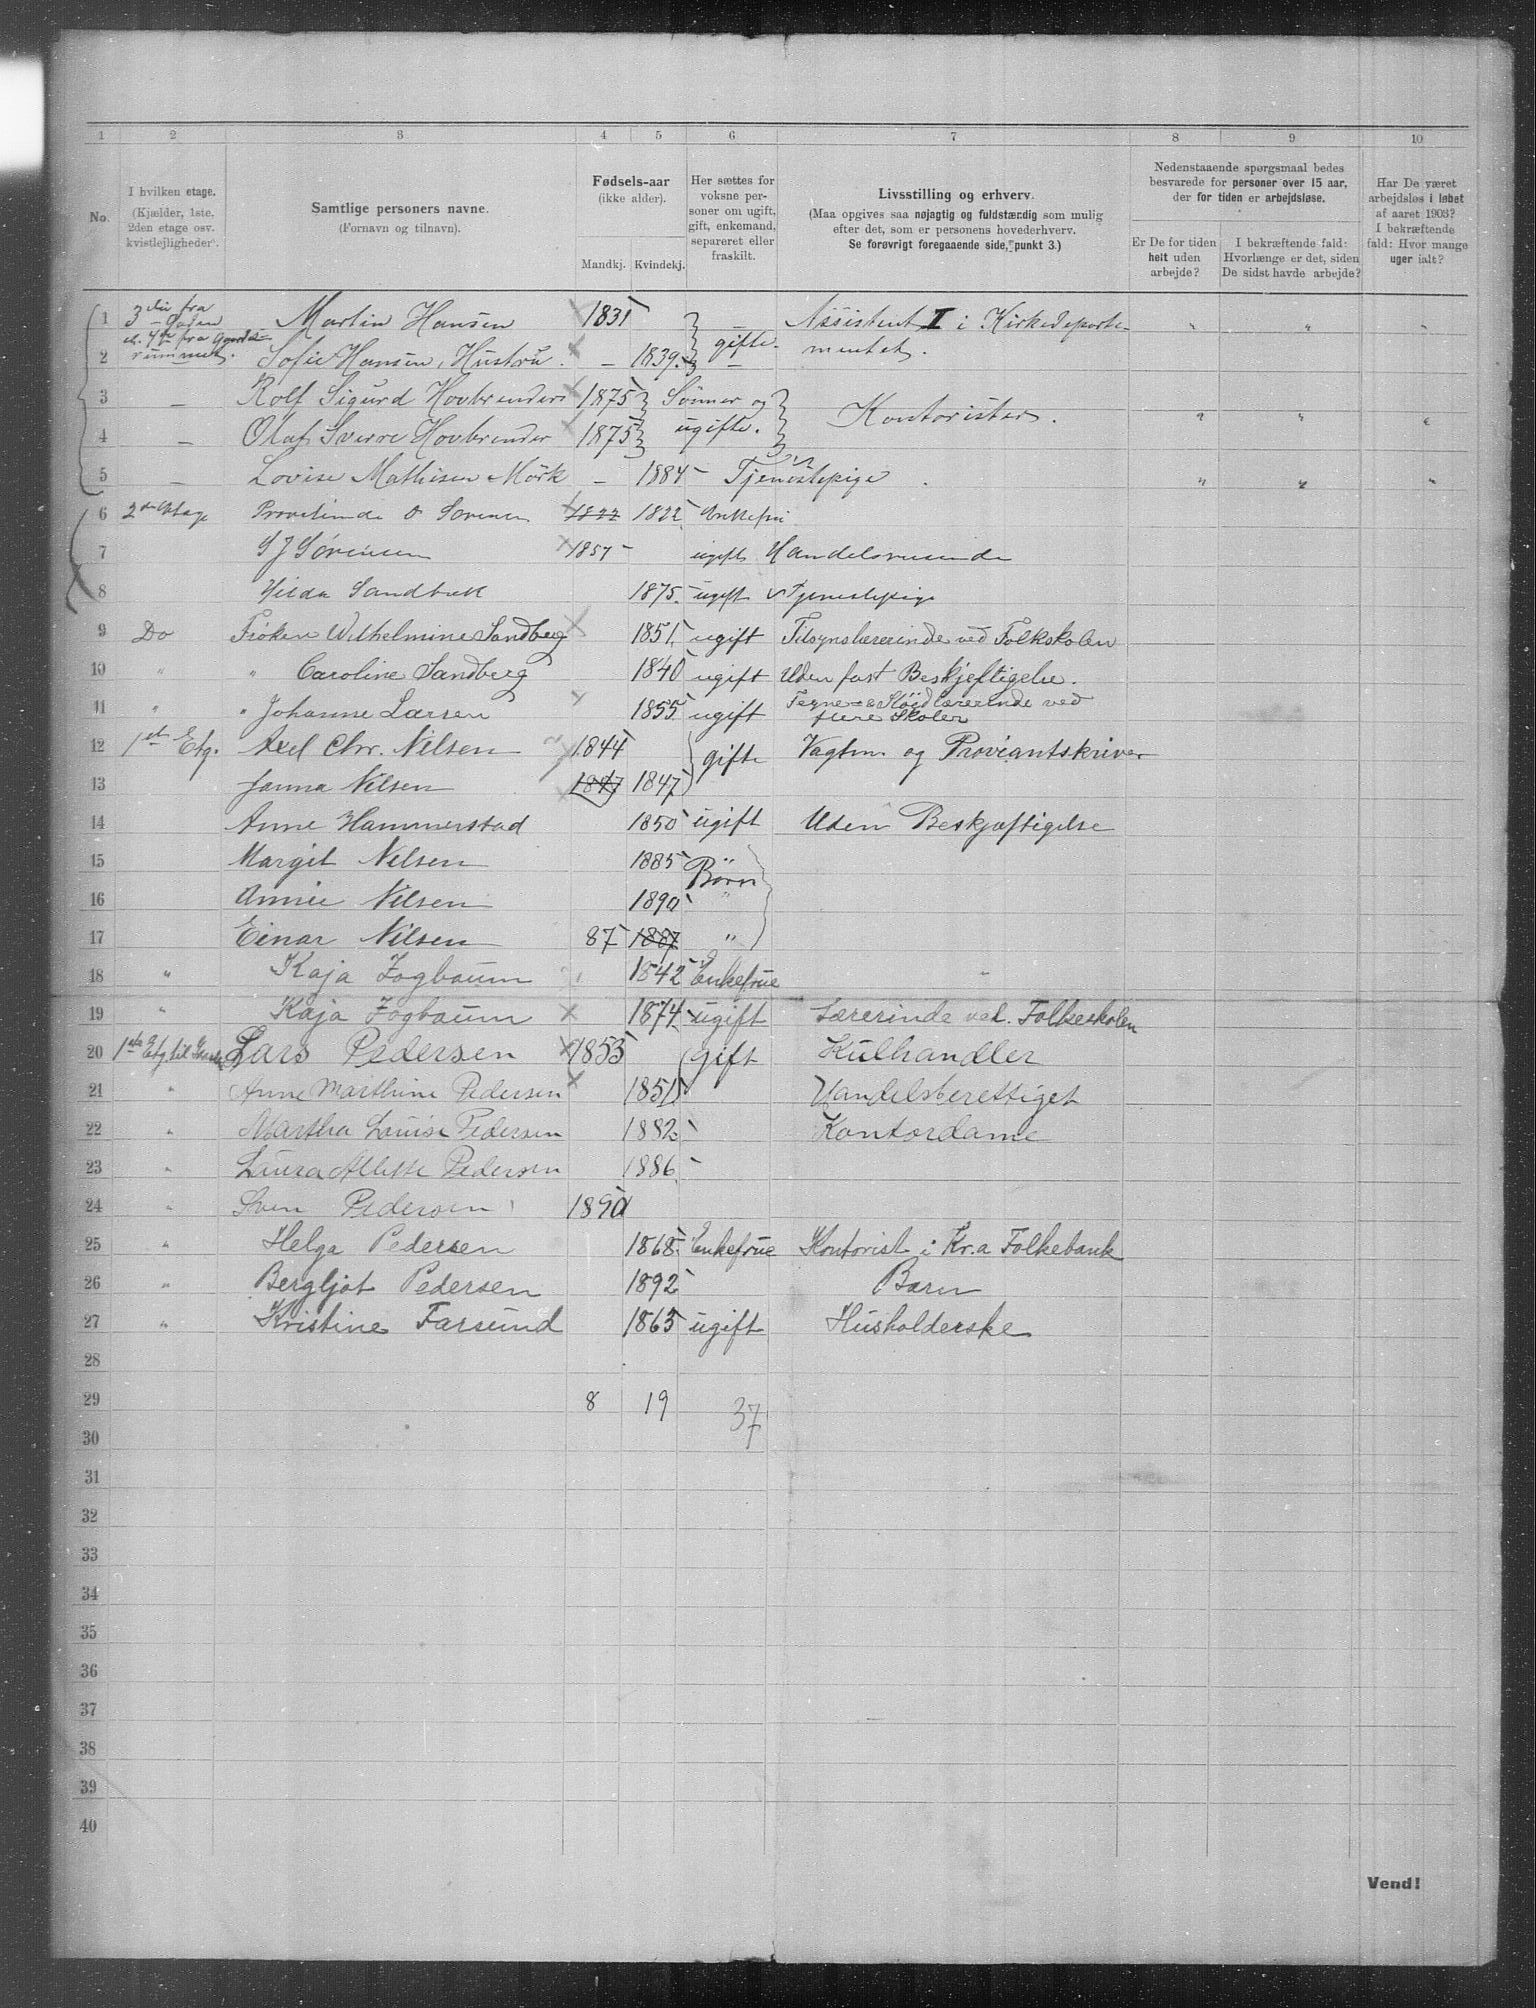 1 2 3 4 5 6 7 8 9 10
No.
I hvilken etage.
(Kjælder, 1ste,
2den etage osv.
kvistlejligheder).
Samtlige personers navne.
(Fornavn og tilnavn).
Fødsels-aar
(ikke alder).
Mandkj. Kvindekj.
Her sættes for
voksne per-
soner om ugift,
gift, enkemand,
separeret eller
fraskilt.
Livsstilling og erhverv.
(Maa opgives saa nøjagtig og fuldstændig som mulig
efter det, som er personens hovederhverv.
Se forøvrigt foregaaende side, punkt 3.)
Nedenstaaende spørgsmaal bedes
besvarede for personer over 15 aar,
der for tiden er arbejdsløse.
Er De for tiden
helt uden
arbejde?
I bekræftende fald:
Hvorlænge er det, siden
De sidst havde arbejde?
Har De været
arbejdsløs i løbet
af aaret 1903?
I bekræftende
fald: Hvor mange
uger ialt?
1 3die fra Gaden Martin Hansen 1831 gifte. Assistent I i Kirkedeparte- " " "
2 el. 4de fra Gaards- rummet. Sofie Hansen, Hustru. — 1839. — mentet.
3 — Rolf Sigurd Hovbrender 1875 Sönner og Kontorister. " " "
4 — Olaf Sverre Hovbrender 1875 ugifte.
5 — Lovise Mathisen Mörk — 1884 Tjenestepige. " " "
6 2den Etage O Sorensen 1822 1822 Enkefru
7 S J Sørensen 1857 ugift Handelsreisende
8 Hilda Sandbek 1875 ugift Tjenestepige
9 Do Frøken Wilhelmine Sandberg 1851 ugift Tilsynslærerinde ved Folkskolen
10 " " Caroline Sandberg 1840 ugift Uden fast Beskjeftigelse.
11 " " Johanne Larsen 1855 ugift Tegne- & Slöidlærerinde ved flere Skoler
12 1st Etg. Axel Chr. Nilsen 1844 gifte Vagtm og Proviantskriver
13 Janna Nilsen 1847 1847
14 Anne Hammerstad 1850 ugift Uden Beskjæftigelse
15 Margit Nilsen 1885 Børn
16 Annie Nilsen 1890 "
17 Einar Nilsen 87 1887 "
18 " Kaja Fogbaum 1842 Enkefrue "
19 " Kaja Fogbaum 1874 ugift Lærerinde ved. Folkeskolen
20 1ste Etg til Lars Pedersen 1853 gift Kulhandler
21 " Anne Marthine Pedersen 1851 Handelsberettiget
22 " Martha Louise Pedersen 1882 Kontordame
23 " Laura Pedersen 1886
24 " Sven Pedersen 1890
25 " Helga Pedersen 1868 Enkefrue Kontorist i Kr.a Folkebank
26 " Bergljot Pedersen 1892 Barn
27 " Kristine Farsund 1863 ugift Husholderske
28
29 8 19 37
30
31
32
33
34
35
36
37
38
39
40
Vend!